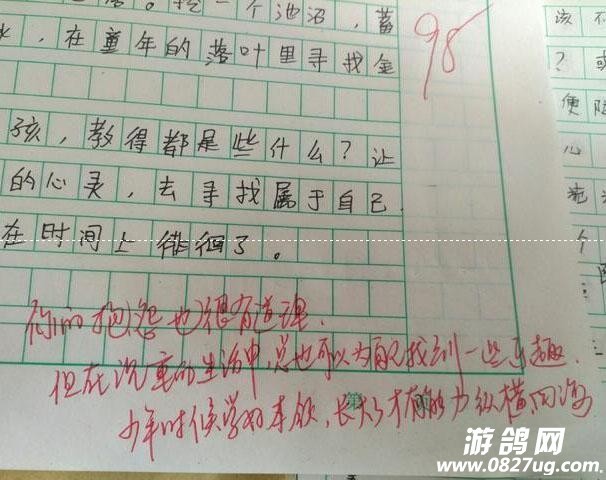 一个池沼，蓄
，在童年的落叶里寻找金
孩，教得都是些什么？让
的心灵，去寻找属于自己
在时间上徘徊了。
98
你的抱怨也很有道理.
但在沉重的生活中,总也可以为自己找到一些乐趣.
少年时候学好本领,长大了才有能力纵横四海
该不
？或
便
心
个
第
游鸽网
www.0827ug.com